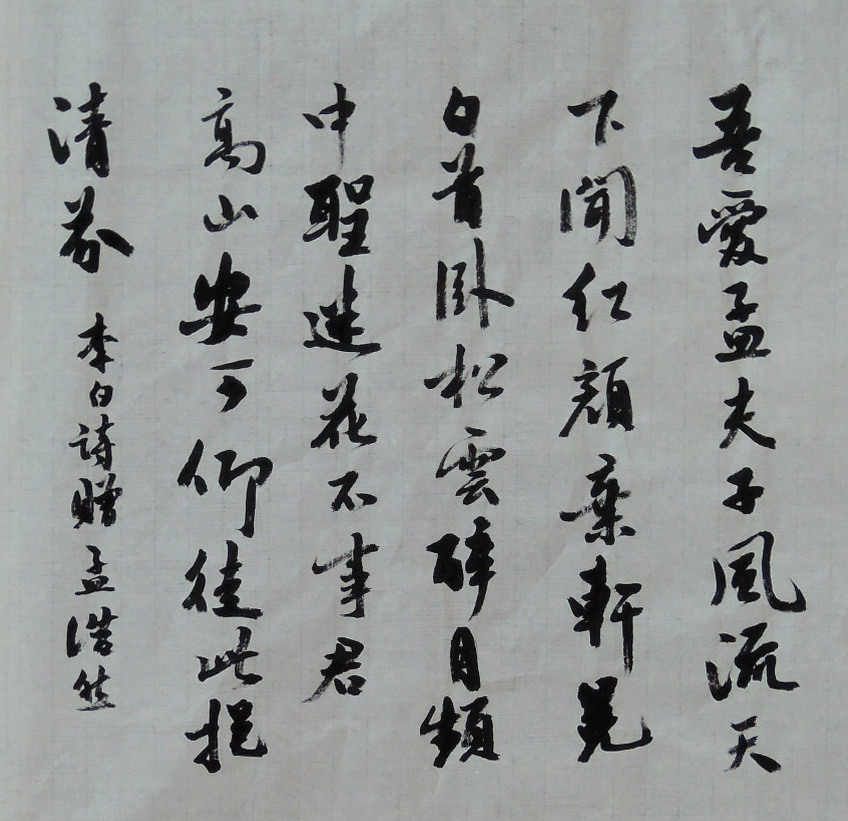 吾愛孟夫子風流天
下聞紅顏棄軒冕
白首臥松雲醉月頻
中聖迷花不事君
高山安可仰徒此挹
清芬
李白詩贈孟浩然